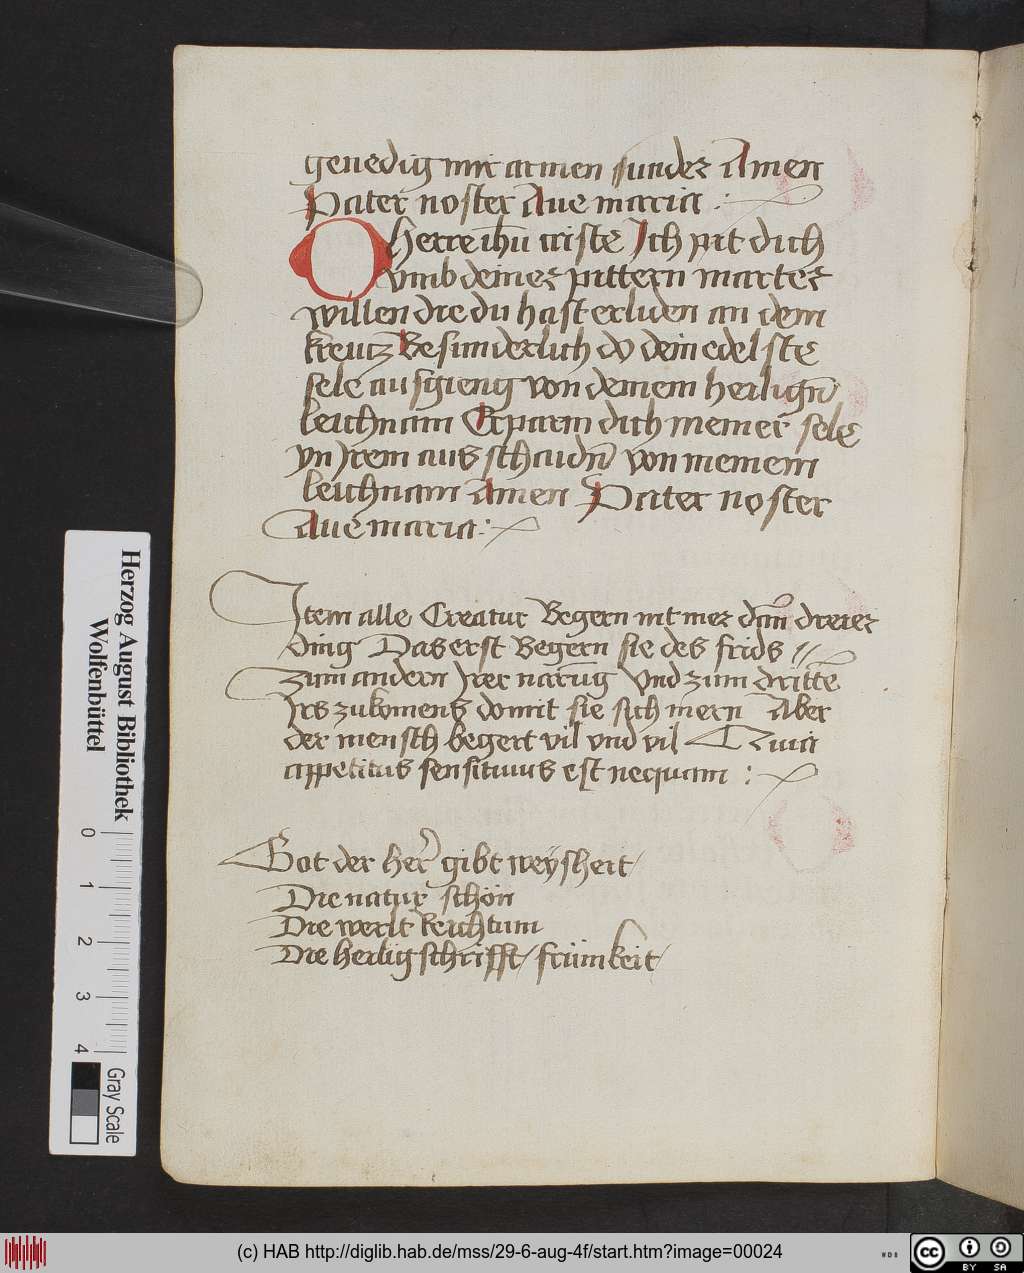 genedig mir armen sunder Amen
Pater noster Aue maria :
O Herre ihu̅ criste Ich pit dich
vmb deiner pittern marter
willen die du hast erliden an dem
kreutz Besunderlich do dein edelste
sele ausgieng von deinem heilign̅
leichnam Erparm dich meiner sele
yn Jrem ausschaidn̅ von meinem
leichnam Amen Pater noster
Aue maria :
Item alle Creatur Begern nit mer dan̅ dreier
ding Das erst Begern sie des frids
zum andern Jrer naru̅g vnd zum dritte̅
Jrs zukomens domit sie sich mern Aber
der mensch begert vil vnd vil Quia
appetitus sensitiuus est nequam :
Got der her̅ gibt weysheit
Die natur schön
Die werlt Reichtum
Die heilig schrifft frümkeit
Herzog August Bibliothek
Wolfenbüttel
0 1 2 3 4
Gray Scale
(c) HAB http://diglib.hab.de/mss/29-6-aug-4f/start.htm?image=00024
WDB
cc BY SA